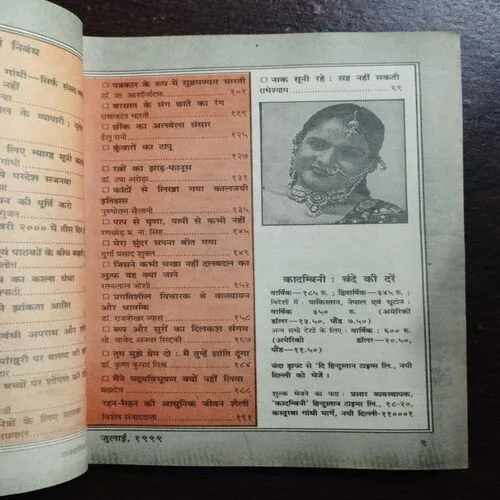 निबंध
गांधी—सिर्फ
नहीं
ल के व्यापारी :
लिए ग्यारह सूत्री
गांधी
से परदेश सजनवा
ान की पूर्ति करो
गुंजन
२००० में तीस दिन
एवं पाठकों के बीच
का काला धंधा
से झांकता अतीत
ंबंधी अपराध और
पांखुरी पर बारूद की
बच्चों पर शोषण की
के प्रताप
□ पत्रकार के रूप में सुब्रमण्यम भारती
डॉ. ना. आशीर्वादम १०१
□ बरसात के संग छाते का रंग
राधाकांत भारती ११९
□ छींक का अलबेला संसार
ईलू रानी १२५
□ कुंवारों का टापू
१२७
□ रत्नों का झाड़-फानूस
डॉ. उषा अरोड़ा १३१
□ कांटों से लिखा गया कालजयी
इतिहास
पुरुषोत्तम सैलानी १३५
□ पाप से घृणा, पापी से कभी नहीं
रणछोड़ प्र. ना. सिंह १४५
□ मेरा सुंदर सपना बीत गया
दुर्गा प्रसाद शुक्ल १४९
□ जिसने कभी चखा नहीं दलबदल का
लुत्फ वह क्या जाने
रतनलाल जोशी १५२
□ प्रगतिशील विचारक थे वात्स्यायन
और चार्वाक
डॉ. राजशेखर व्यास १५८
□ रूप और सुरों का दिलकश संगम
मो. जाकेद अनवर सिद्दकी १६८
□ तुम मुझे प्रेम दो : मैं तुम्हें शांति दूंगा
डॉ. कृष्ण कुमार मिश्र १८४
□ मैंने पद्मविभूषण क्यों नहीं लिया
ब्रहादेव १८८
रहन-सहन की आधुनिक जीवन शैली
विशेष संवाददाता १९१
□ नाक सूनी रहे : सह नहीं सकती
राधेश्याम ६९
कादम्बिनी : चंदे की दरें
वार्षिक—१८५ रु., द्विवार्षिक—३४५ रु.;
विदेशों में : पाकिस्तान, नेपाल एवं भूटान :
वार्षिक ३५० रु. (अमेरिकी
डॉलर—१३.५०, पौंड ७.५०)
अन्य सभी देशों के लिए : वार्षिक : ६०० रु.
(अमेरिकी डॉलर—२०.५०,
पौंड—११.५०)
चंदा ड्राफ्ट से 'दि हिन्दुस्तान टाइम्स लि., नयी
दिल्ली को भेजें ।
शुल्क भेजने का पता : प्रसार व्यवस्थापक,
'कादम्बिनी' हिन्दुस्तान टाइम्स लि., १८-२०,
कस्तूरबा गांधी मार्ग, नयी दिल्ली-११०००१
जुलाई, १९९९
९